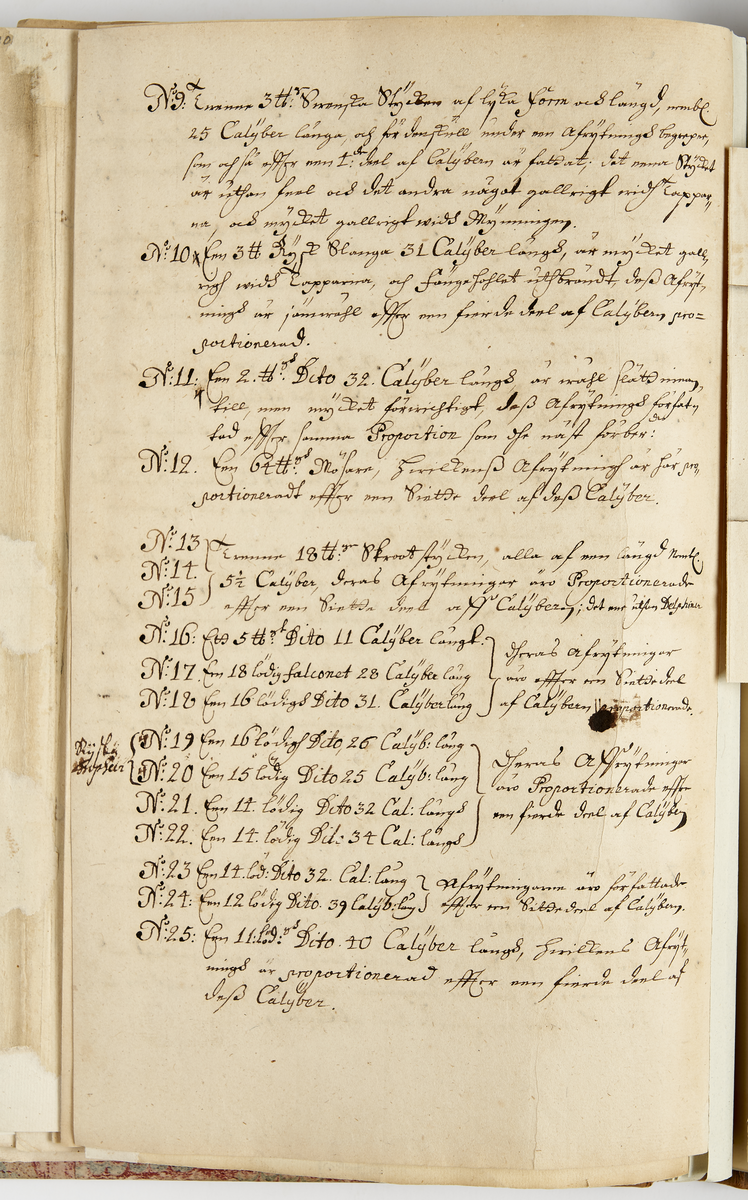 N:o 9: Trenne 3 ℔:s Swenska Stycken af lyka form och längd, nembl.
25 Calyber långa, och för denskull under een Afrytningh begrepne,
som och så effter een 4:de deel af Calybern är fattat; det eena Stycket
är uthan feel och det andra något gallrigt widh Tappar-
na, och mycket gallrigt widh Mynningen.
N:o 10 Een 3 ℔ Rysk Slanga 31 Calyber långh, är mycket gall-
righ widh Tapparna, och Fängehohlet uthbrändt, deß Afryt-
ningh är jämwähl effter een fierde deel af Calybern, pro=
portionerad.
N:o 11: Een 2. ℔:s Dito 32. Calyber långh, är wähl slätt innan
till, men mycket förwichtigt, deß Afrytningh författ-
tad effter samma Proportion som the näst förber:de
N:o 12. Een 64 ℔:s Mösare, hwilkenß Afrytningh är här pro-
portioneradt effter een Siette deel af deß Calyber.
N:o 13 Trenne 18 ℔:s Skrootstycken, alla af een längd Nembl.
N:o 14. 5½ Calyber, deras Afrytningar äro Proportionerade
N:o 15 effter een Siette deel aff Calybern; det ene uthan Delphiner
N:o 16: Ett 5 ℔:s Dito 11 Calyber långt.
N:o 17. Een 18 lödig falconet 28 Calyber lång
N:o 18 Een 16 lödigh Dito 31. Calyber lång
Theras Afrytningar
äro effter een Siette deel
af Calybern proportionerade.
Ryska
Tropheer
N:o 19 Een 16 lödigh Dito 26 Calyb: lång
N:o 20 Een 15 lödig Dito 25 Calyb: lång
N:o 21. Een 14. lödig Dito 32 Cal: långh
N:o 22. Een 14. lödig Dit: 34 Cal: långh
Theras Affrytningar
äro Proportionerade effter
een fierde deel af Calyber
N:o 23 Een 14. löd: Dito 32. Cal: lång
N:o 24: Een 12 lödig Dito. 39 Calyb: lång
Afrytningarne äro författade
effter een Sitte deel af Calybern.
N:o 25: Een 11: löd: Dito. 40 Calyber långh, hwilkens Afryt-
ningh är proportionerad effter een fierde deel af
deß Calyber.